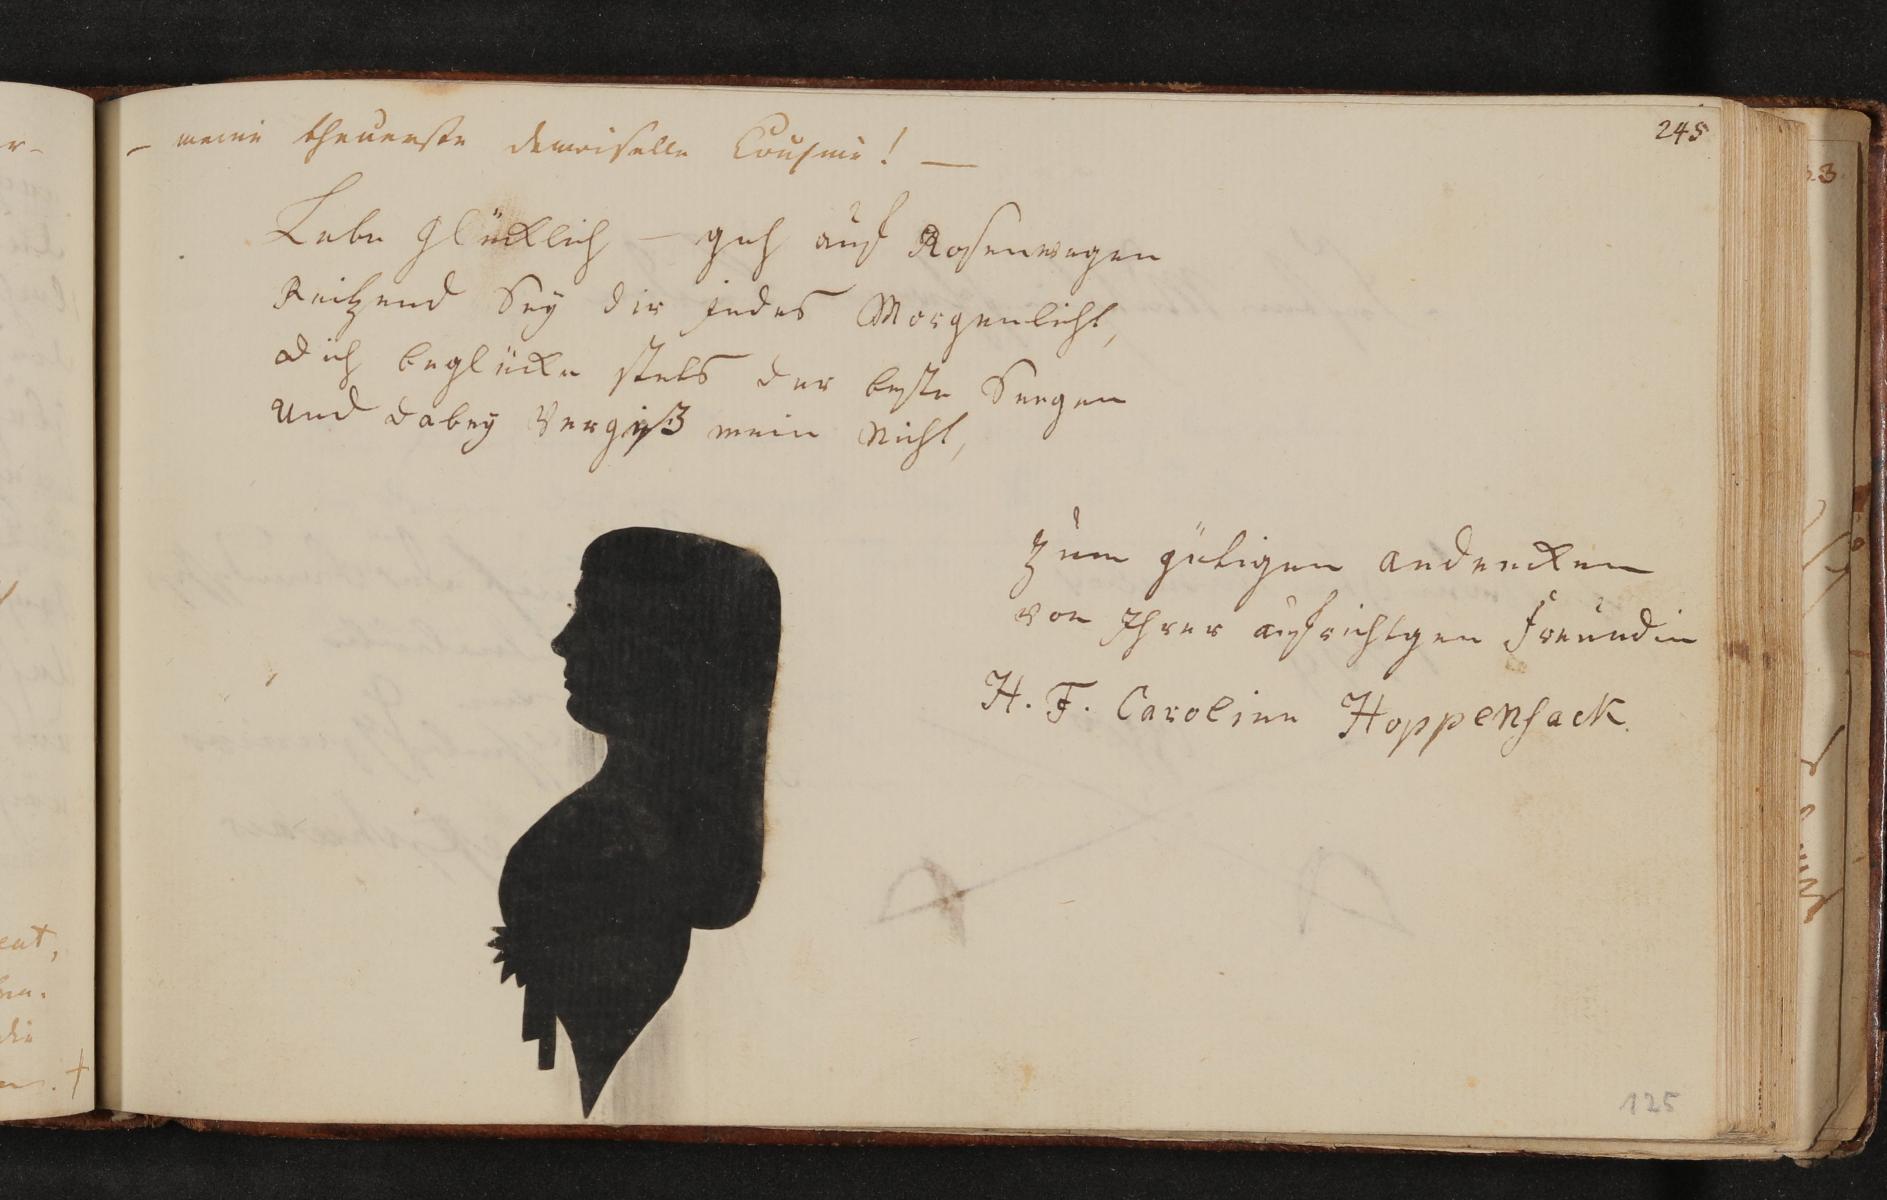 245
— meine theuerste demoiselle Cousine! —
Lebe glücklich — geh auf Rosenwegen
Reitzend Sey dir jedes Morgenlicht,
Dich beglücke stets der beste Seegen
Und dabey Vergiß mein Nicht,
Zum gütigen andencken
von Ihrer aufrichtgen Freundin
H. F. Caroline Hoppensack.
125